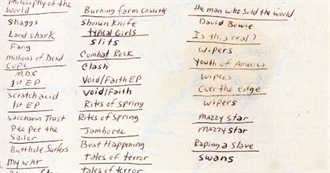 Philosophy of the
World
Shaggs
Landshark
Fang
millions of Dead
Cops
M.D.C
1st EP
Scratch acid
1st EP
Saccharin Trust
Pee pee the
Sailor
Butthole Surfers
My WAr
Burning farm Cassette
Shonen Knife
typical Girls
slits
Combat Rock
Clash
Void/Faith EP
Void/Faith
Rites of spring
Rites of Spring
Jamboree
Beat Happening
tales of terror
tales of terror
the man who sold the world
David Bowie
Is this real?
wipers
Youth of America
wipers
Over the edge
wipers
mazzy star
mazzy star
Raping a slave
swans